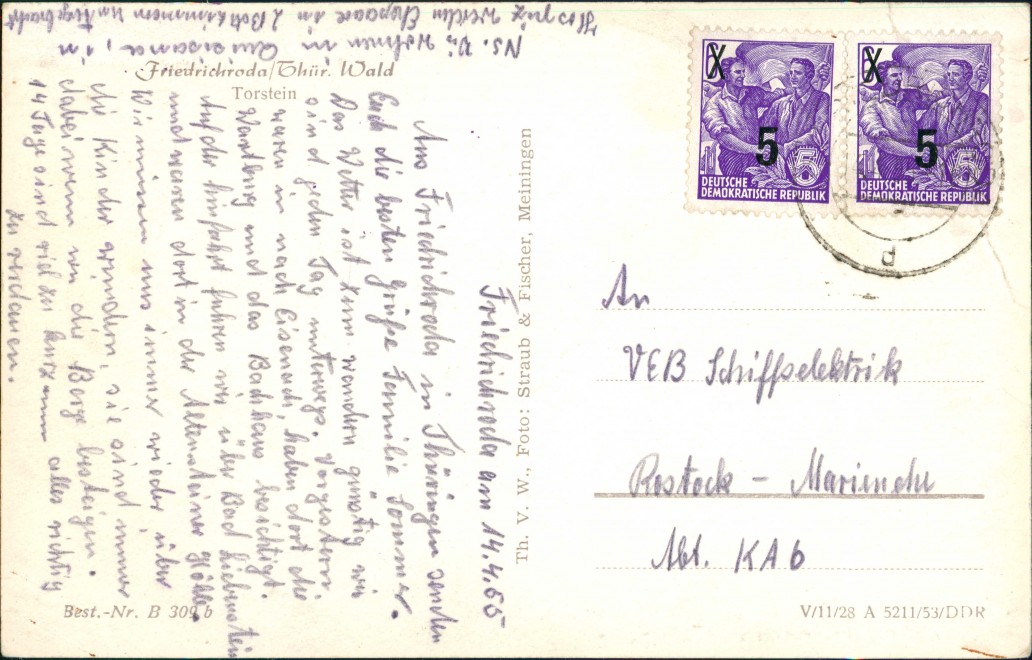 Friedrichroda am 14.4.55
Aus Friedrichroda in Thüringen senden
Euch die besten Grüße Familie Sommer.
Das Wetter ist zum wandern günstig wir
sind jeden Tag unterwegs. Vorgestern
waren in nach Eisenach, haben dort die
Wartburg und das Bachhaus besichtigt.
Auf der hinfahrt fuhren wir über Bad Liebenstein
und waren dort in der Altensteiner Höhle.
Wir müssen uns immer wieder über
die Kinder wundern, sie sind immer
dabei wenn wir die Berge besteigen.
14 Tage sind viel zu kurz um alles richtig
zu verdauen.
NS. Wir wohnen in Quisisana, in
Hospiz werden Ehepaare in 2 Bettzimmern untergebracht
Friedrichroda/Thür. Wald
Torstein
Best.-Nr. B 309 b
Th. V. W., Foto: Straub & Fischer, Meiningen
X
5
5
DEUTSCHE
DEMOKRATISCHE REPUBLIK
X
5
5
DEUTSCHE
DEMOKRATISCHE REPUBLIK
d
An
VEB Schiffselektrik
Rostock - Marienehe
Abt. KA6
V/11/28 A 5211/53/DDR